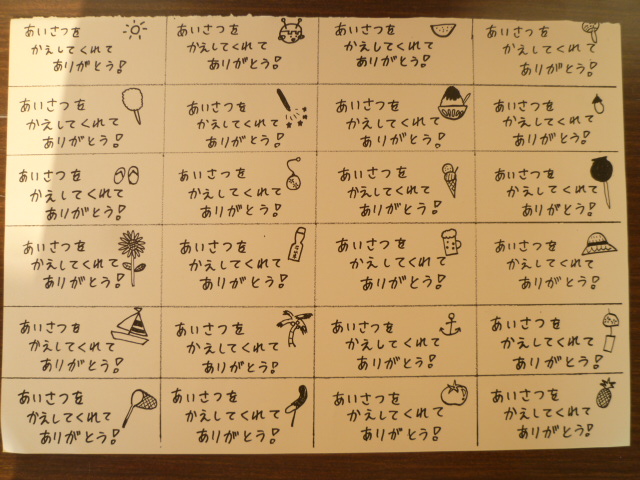 あいさつを
かえしてくれて
ありがとう!
あいさつを
かえしてくれて
ありがとう!
あいさつを
かえしてくれて
ありがとう!
あいさつを
かえしてくれて
ありがとう!
あいさつを
かえしてくれて
ありがとう!
あいさつを
かえしてくれて
ありがとう!
あいさつを
かえしてくれて
ありがとう!
あいさつを
かえしてくれて
ありがとう!
あいさつを
かえしてくれて
ありがとう!
あいさつを
かえしてくれて
ありがとう!
あいさつを
かえしてくれて
ありがとう!
あいさつを
かえしてくれて
ありがとう!
あいさつを
かえしてくれて
ありがとう!
あいさつを
かえしてくれて
ありがとう!
あいさつを
かえしてくれて
ありがとう!
あいさつを
かえしてくれて
ありがとう!
あいさつを
かえしてくれて
ありがとう!
あいさつを
かえしてくれて
ありがとう!
あいさつを
かえしてくれて
ありがとう!
あいさつを
かえしてくれて
ありがとう!
あいさつを
かえしてくれて
ありがとう!
あいさつを
かえしてくれて
ありがとう!
あいさつを
かえしてくれて
ありがとう!
あいさつを
かえしてくれて
ありがとう!